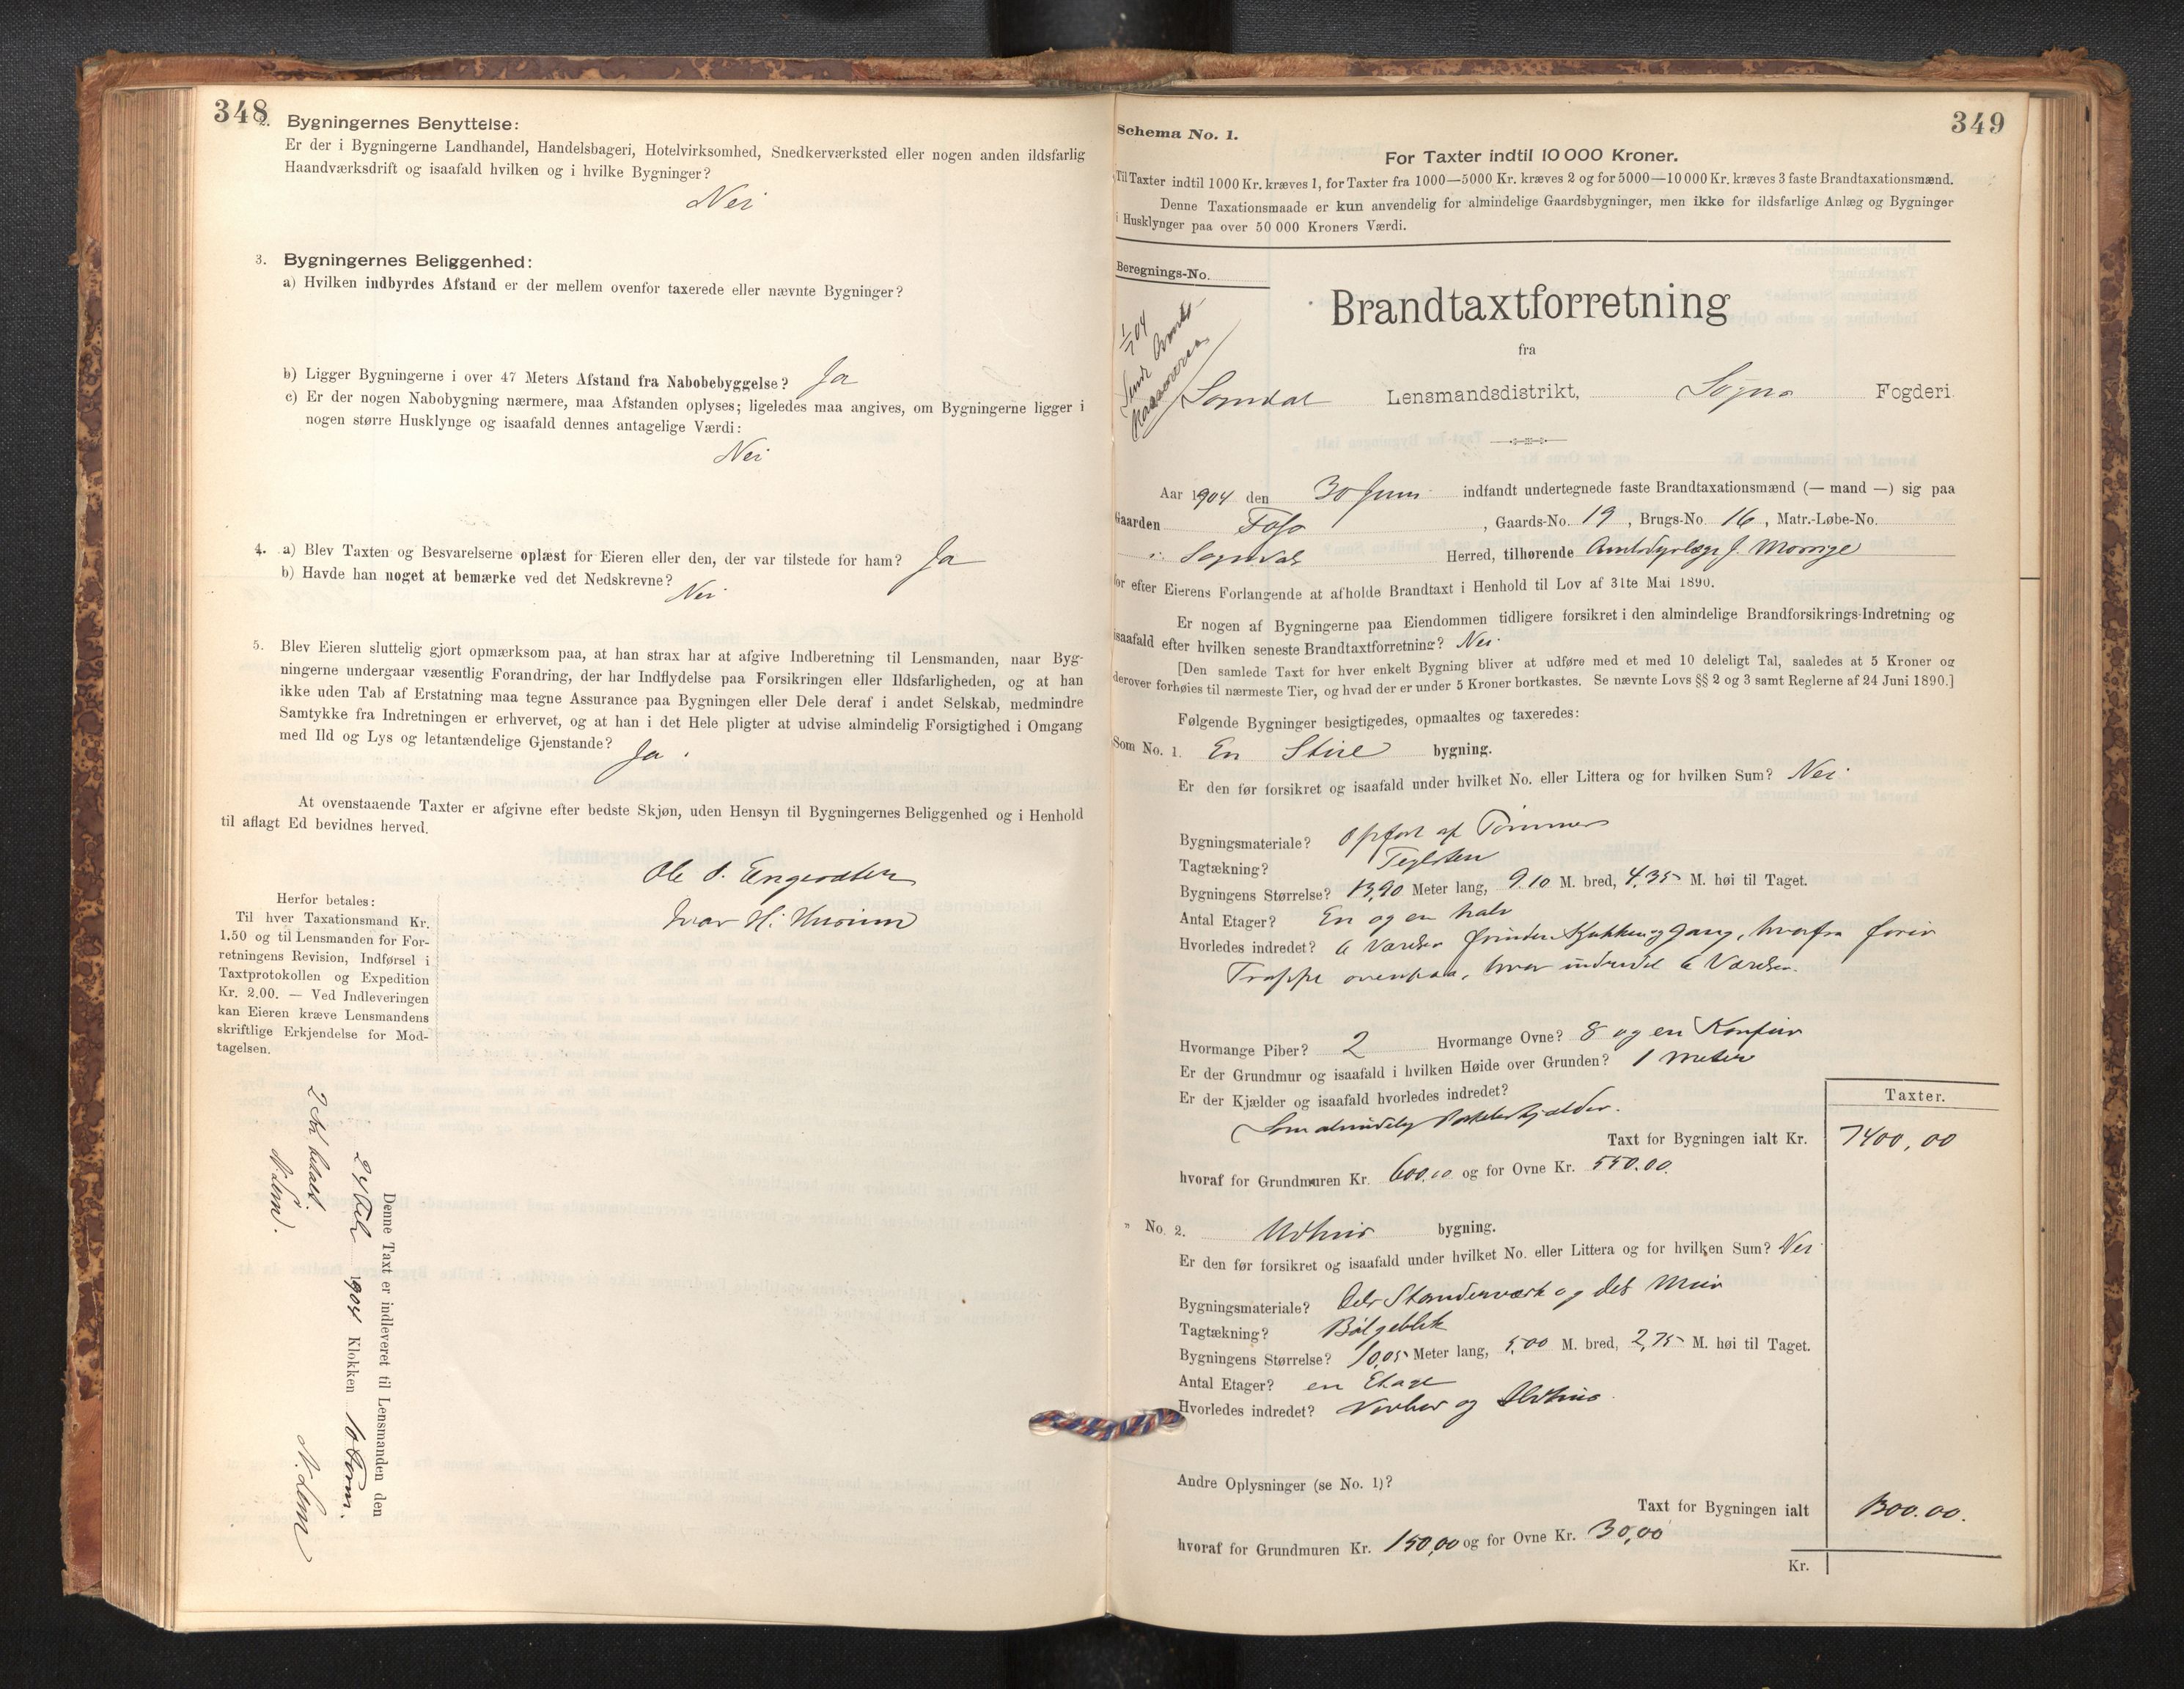 348
2. Bygningernes Benyttelse:
Er der i Bygningerne Landhandel, Handelsbageri, Hotelvirksomhed, Snedkerværksted eller nogen anden ildsfarlig
Haandværksdrift og isaafald hvilken og i hvilke Bygninger?
Nei
3. Bygningernes Beliggenhed:
a) Hvilken indbyrdes Afstand er der mellem ovenfor taxerede eller nævnte Bygninger?
b) Ligger Bygningerne i over 47 Meters Afstand fra Nabobebyggelse? Ja
c) Er der nogen Nabobygning nærmere, maa Afstanden oplyses; ligeledes maa angives, om Bygningerne ligger i
nogen større Husklynge og isaafald dennes antagelige Værdi:
Nei
4. a) Blev Taxten og Besvarelserne oplæst for Eieren eller den, der var tilstede for ham? Ja
b) Havde han noget at bemærke ved det Nedskrevne?
Nei
5. Blev Eieren sluttelig gjort opmærksom paa, at han strax har at afgive Indberetning til Lensmanden, naar Byg-
ningerne undergaar væsentlig Forandring, der har Indflydelse paa Forsikringen eller Ildsfarligheden, og at han
ikke uden Tab af Erstatning maa tegne Assurance paa Bygningen eller Dele deraf i andet Selskab, medmindre
Samtykke fra Indretningen er erhvervet, og at han i det Hele pligter at udvise almindelig Forsigtighed i Omgang
med Ild og Lys og letantændelige Gjenstande? Ja.
At ovenstaaende Taxter er afgivne efter bedste Skjøn, uden Hensyn til Bygningernes Beliggenhed og i Henhold
til aflagt Ed bevidnes herved.
Ole
Ivar H.
Herfor betales:
Til hver Taxationsmand Kr.
1.50 og til Lensmanden for For-
retningens Revision, Indførsel i
Taxtprotokollen og Expedition
Kr. 2.00. — Ved Indleveringen
kan Eieren kræve Lensmandens
skriftlige Erkjendelse for Mod-
tagelsen.
Denne Taxt er indleveret til Lensmanden den
1904 Klokken 10 Form.
N. Lem
2 Kr. betalt.
N. Lem.
349
Schema No. 1.
For Taxter indtil 10 000 Kroner.
Til Taxter indtil 1000 Kr. kræves 1, for Taxter fra 1000—5000 Kr. kræves 2 og for 5000—10 000 Kr. kræves 3 faste Brandtaxationsmænd.
Denne Taxationsmaade er kun anvendelig for almindelige Gaardsbygninger, men ikke for ildsfarlige Anlæg og Bygninger
i Husklynger paa over 50 000 Kroners Værdi.
Beregnings-No.
Brandtaxtforretning
fra
Sogndal Lensmandsdistrikt, Sogns Fogderi.
Aar 1904 den 30 Juni indfandt undertegnede faste Brandtaxationsmænd (— mand —) sig paa
Gaarden Fosso, Gaards-No. 19, Brugs-No. 16, Matr.-Løbe-No.
i Sogndal Herred, tilhørende Amtsdyrlæge J.
for efter Eierens Forlangende at afholde Brandtaxt i Henhold til Lov af 31te Mai 1890.
Er nogen af Bygningerne paa Eiendommen tidligere forsikret i den almindelige Brandforsikrings-Indretning og
isaafald efter hvilken seneste Brandtaxtforretning? Nei.
[Den samlede Taxt for hver enkelt Bygning bliver at udføre med et med 10 deleligt Tal, saaledes at 5 Kroner og
derover forhøies til nærmeste Tier, og hvad der er under 5 Kroner bortkastes. Se nævnte Lovs §§ 2 og 3 samt Reglerne af 24 Juni 1890.]
Følgende Bygninger besigtigedes, opmaaltes og taxeredes:
Som No. 1. En bygning.
Er den før forsikret og isaafald under hvilket No. eller Littera og for hvilken Sum? Nei.
Bygningsmateriale? Opført af Tømmer
Tagtækning? Teglsten
Bygningens Størrelse? 13,90 Meter lang, 9.10 M. bred, 4,35 M. høi til Taget.
Antal Etager? En og en halv
Hvorledes indredet? 6 Værelser foruden Kjøkken og Gang, hvorfra fører
Trappe ovenpaa, hvor indredet 6 Værelser.
Hvormange Piber? 2 Hvormange Ovne? 8 og en Komfur
Er der Grundmur og isaafald i hvilken Høide over Grunden? 1 Meter
Er der Kjælder og isaafald hvorledes indredet?
Som almindelig Potetkjælder.
Taxter.
Taxt for Bygningen ialt Kr. 7400,00
hvoraf for Grundmuren Kr. 600.00 og for Ovne Kr. 550.00.
" No. 2. Udhus bygning.
Er den før forsikret og isaafald under hvilket No. eller Littera og for hvilken Sum? Nei
Bygningsmateriale? Dels Stenderværk og dels Muur
Tagtækning? Bølgeblik
Bygningens Størrelse? 10,05 Meter lang, 5,00 M. bred, 2,75 M. høi til Taget.
Antal Etager? en Etage
Hvorledes indredet? og
Andre Oplysninger (se No. 1)?
Taxt for Bygningen ialt 1300.00.
hvoraf for Grundmuren Kr. 150,00 og for Ovne Kr. 30,00
Kr.